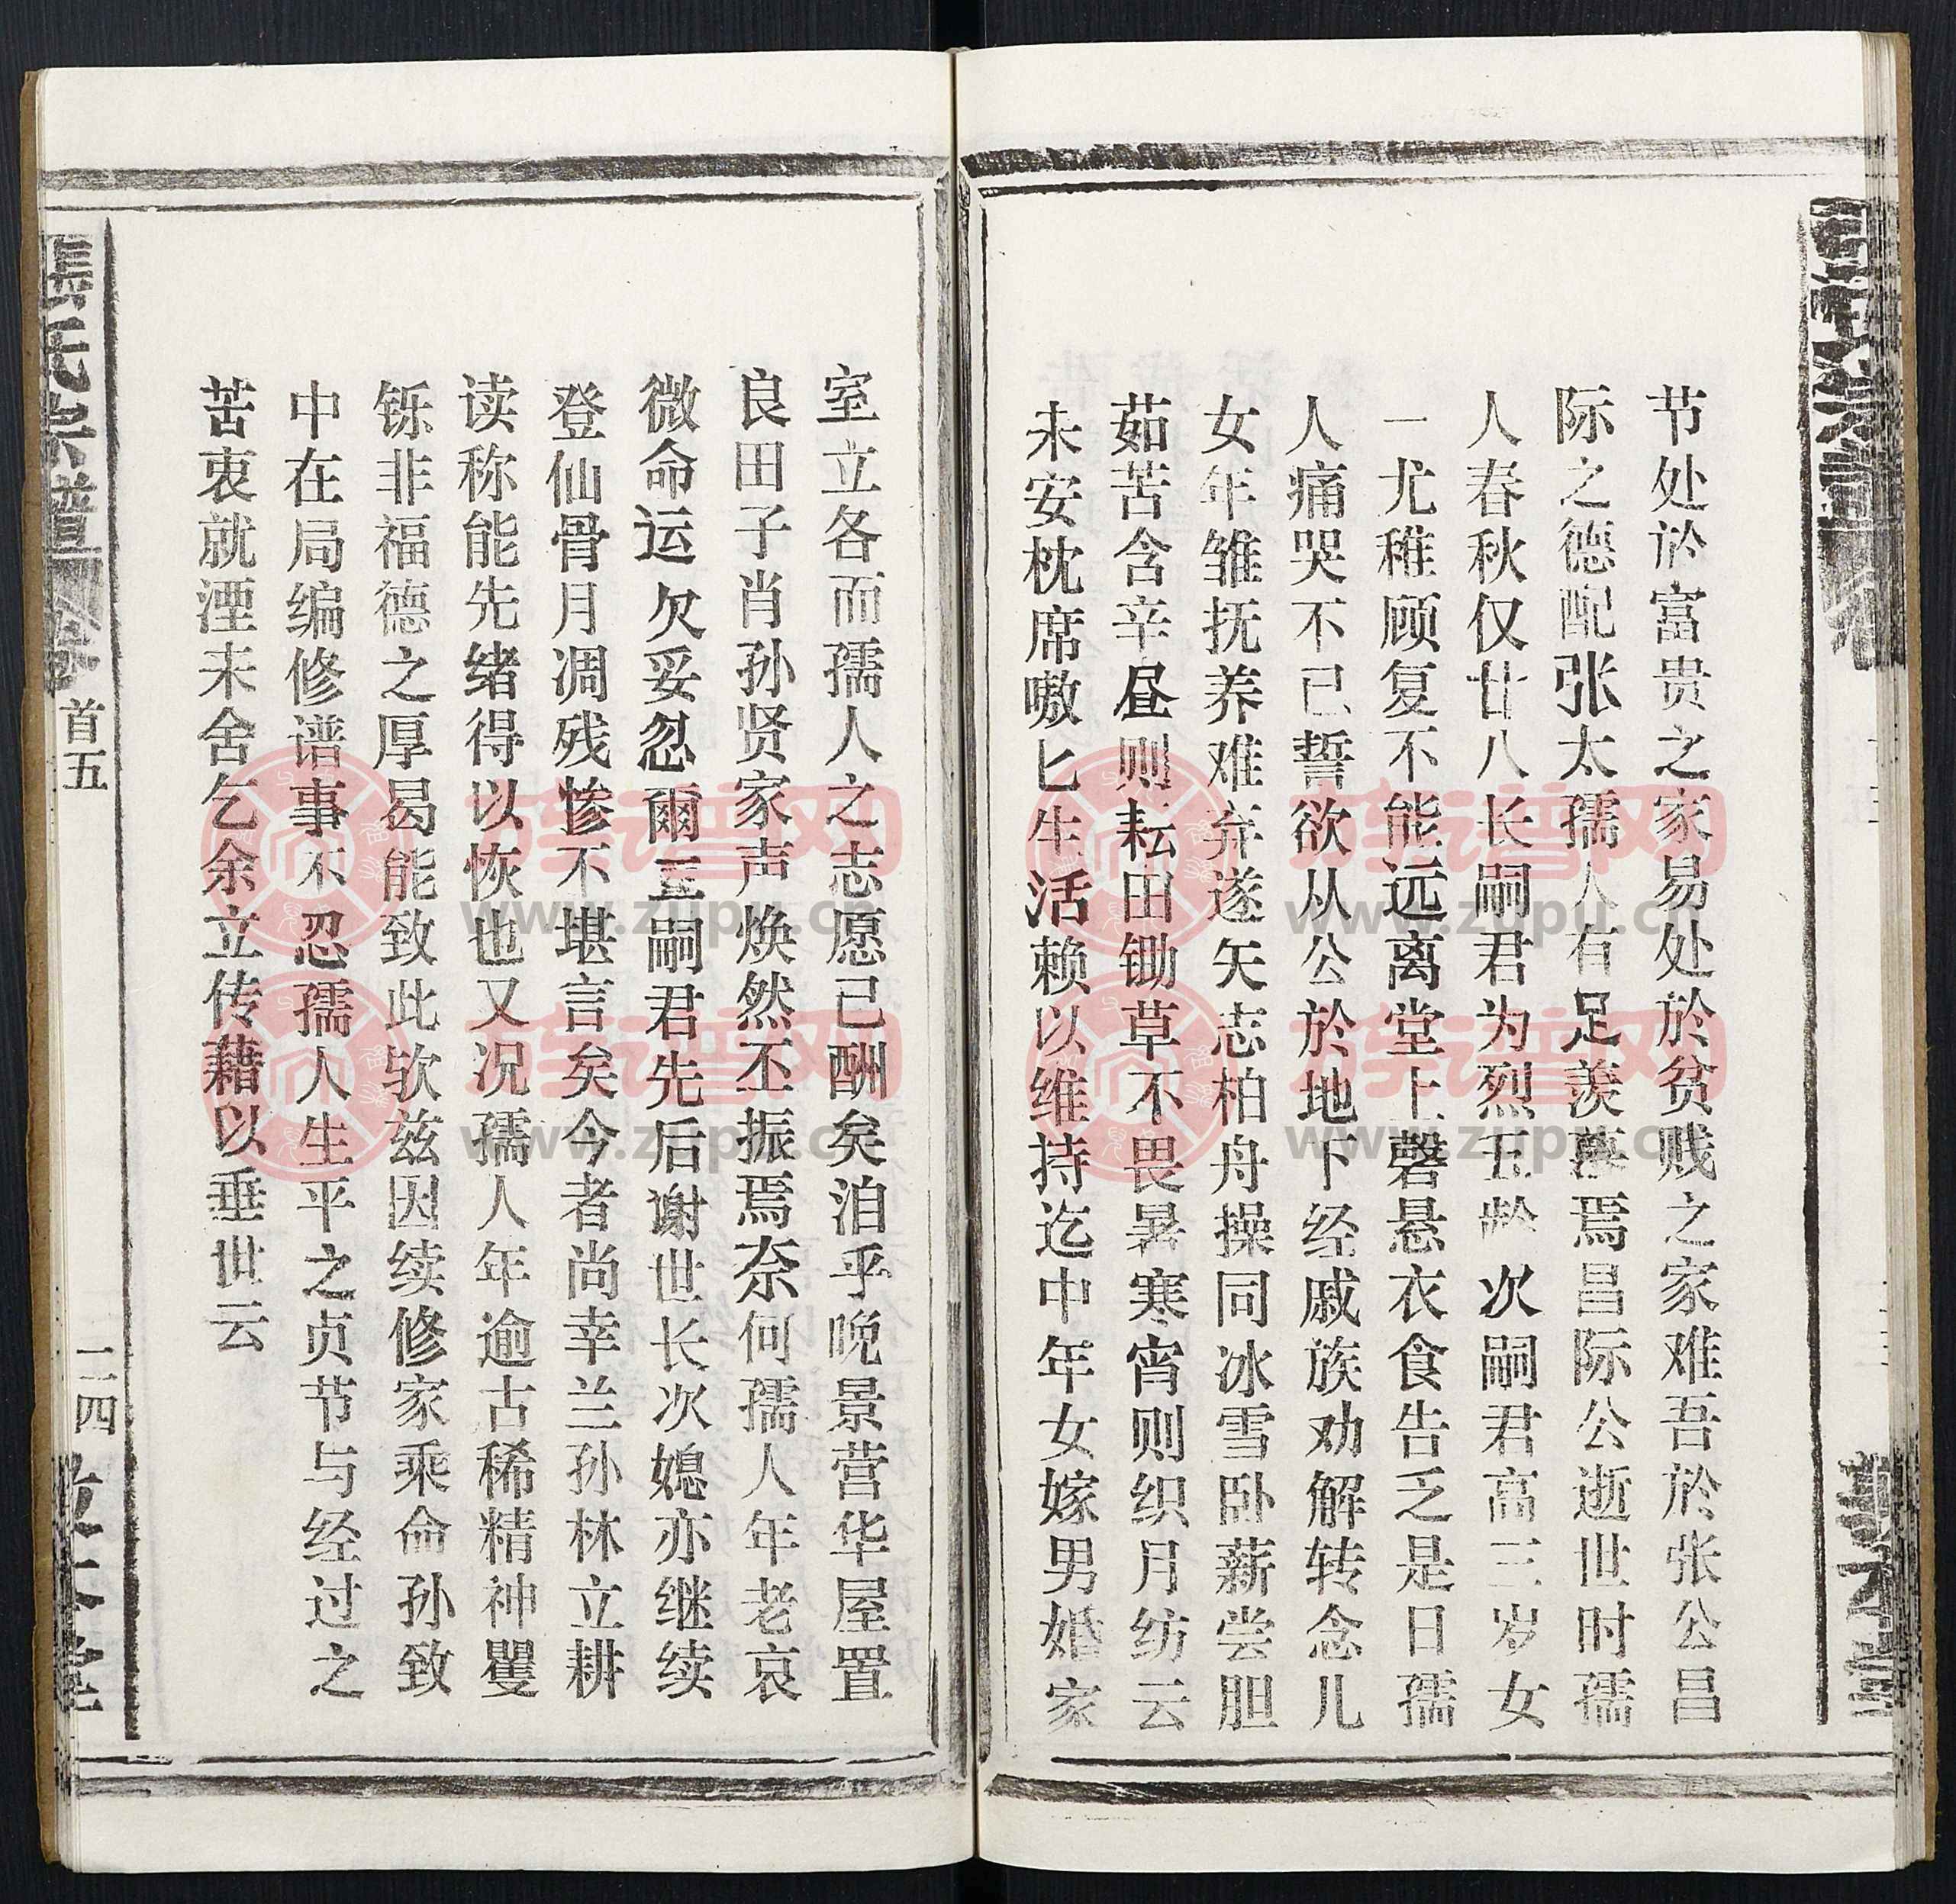 节处於富贵之家易处於贫贱之家难吾於张公昌
际之德配张太孺人有足羡慕焉昌际公逝世时孺
人春秋仅廿八长嗣君为烈五龄次嗣君高三岁女
一尤稚顾复不能远离堂上磬悬衣食告乏是日孺
人痛哭不已誓欲从公於地下经戚族劝解转念儿
女年雏抚养难弃遂矢志柏舟操同冰雪卧薪尝胆
茹苦含辛昼则耘田锄草不畏暑寒宵则织月纺云
未安枕席嗷匕生活赖以维持迄中年女嫁男婚家
室立各而孺人之志愿已酬矣洎乎晚景营华屋置
良田子肖孙贤家声焕然丕振焉奈何孺人年老哀
微命运欠妥忽爾三嗣君先后谢世长次媳亦继续
登仙骨月凋残惨不堪言矣今者尚幸兰孙林立耕
读称能先绪得以恢也又况孺人年逾古稀精神矍
铄非福德之厚曷能致此欤兹因续修家乘命孙致
中在局编修谱事不忍孺人生平之贞节与经过之
苦衷就湮未舍乞余立传藉以垂世云
张氏宗谱 卷 首五 二四
族谱网
www.zupu.cn
族谱网
www.zupu.cn
族谱网
www.zupu.cn
族谱网
www.zupu.cn